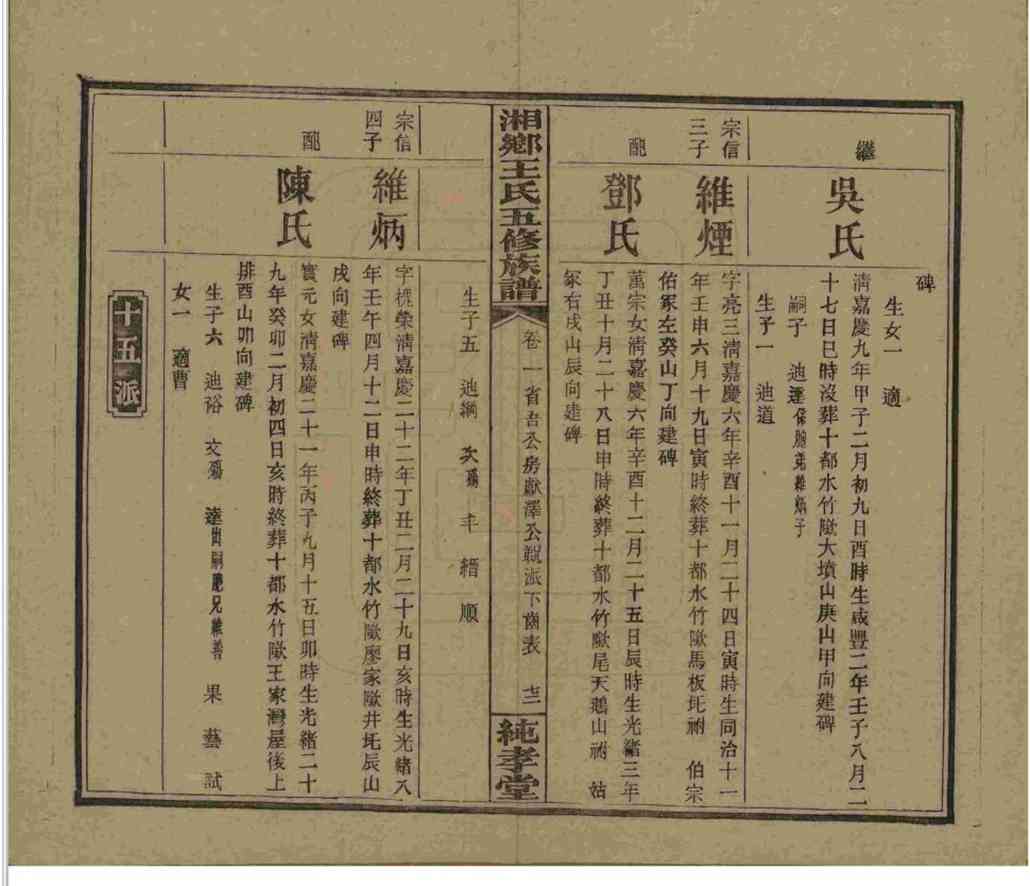 碑
生女一　適
繼
吳氏
清嘉慶九年甲子二月初九日酉時生咸豐二年壬子八月二
十七日巳時沒葬十都水竹㘰大墳山庚山甲向建碑
嗣子　迪　胞弟維炳子
生子一　迪道
宗信
三子
維煙
字亮三清嘉慶六年辛酉十一月二十四日寅時生同治十一
年壬申六月十九日寅時終葬十都水竹㘰馬板坵祔　伯宗
佑冢左癸山丁向建碑
配
鄧氏
萬宗女清嘉慶六年辛酉十二月二十五日辰時生光緒三年
丁丑十月二十八日申時終葬十都水竹㘰尾天鵝山祔　姑
冢右戌山辰向建碑
湘鄉王氏五修族譜
卷一省吾公房獻澤公親派下齒表　十二
純孝堂
生子五　迪綱　　縉　順
宗信
四子
維炳
字槐榮清嘉慶二十二年丁丑二月二十九日亥時生光緒八
年壬午四月十二日申時終葬十都水竹㘰廖家㘰井坵辰山
戌向建碑
配
陳氏
實元女清嘉慶二十一年丙子九月十五日卯時生光緒二十
九年癸卯二月初四日亥時終葬十都水竹㘰王家灣屋後上
排酉山卯向建碑
生子六　迪裕　達出嗣胞兄維善　果　藝　試
女一　適曹
十五派